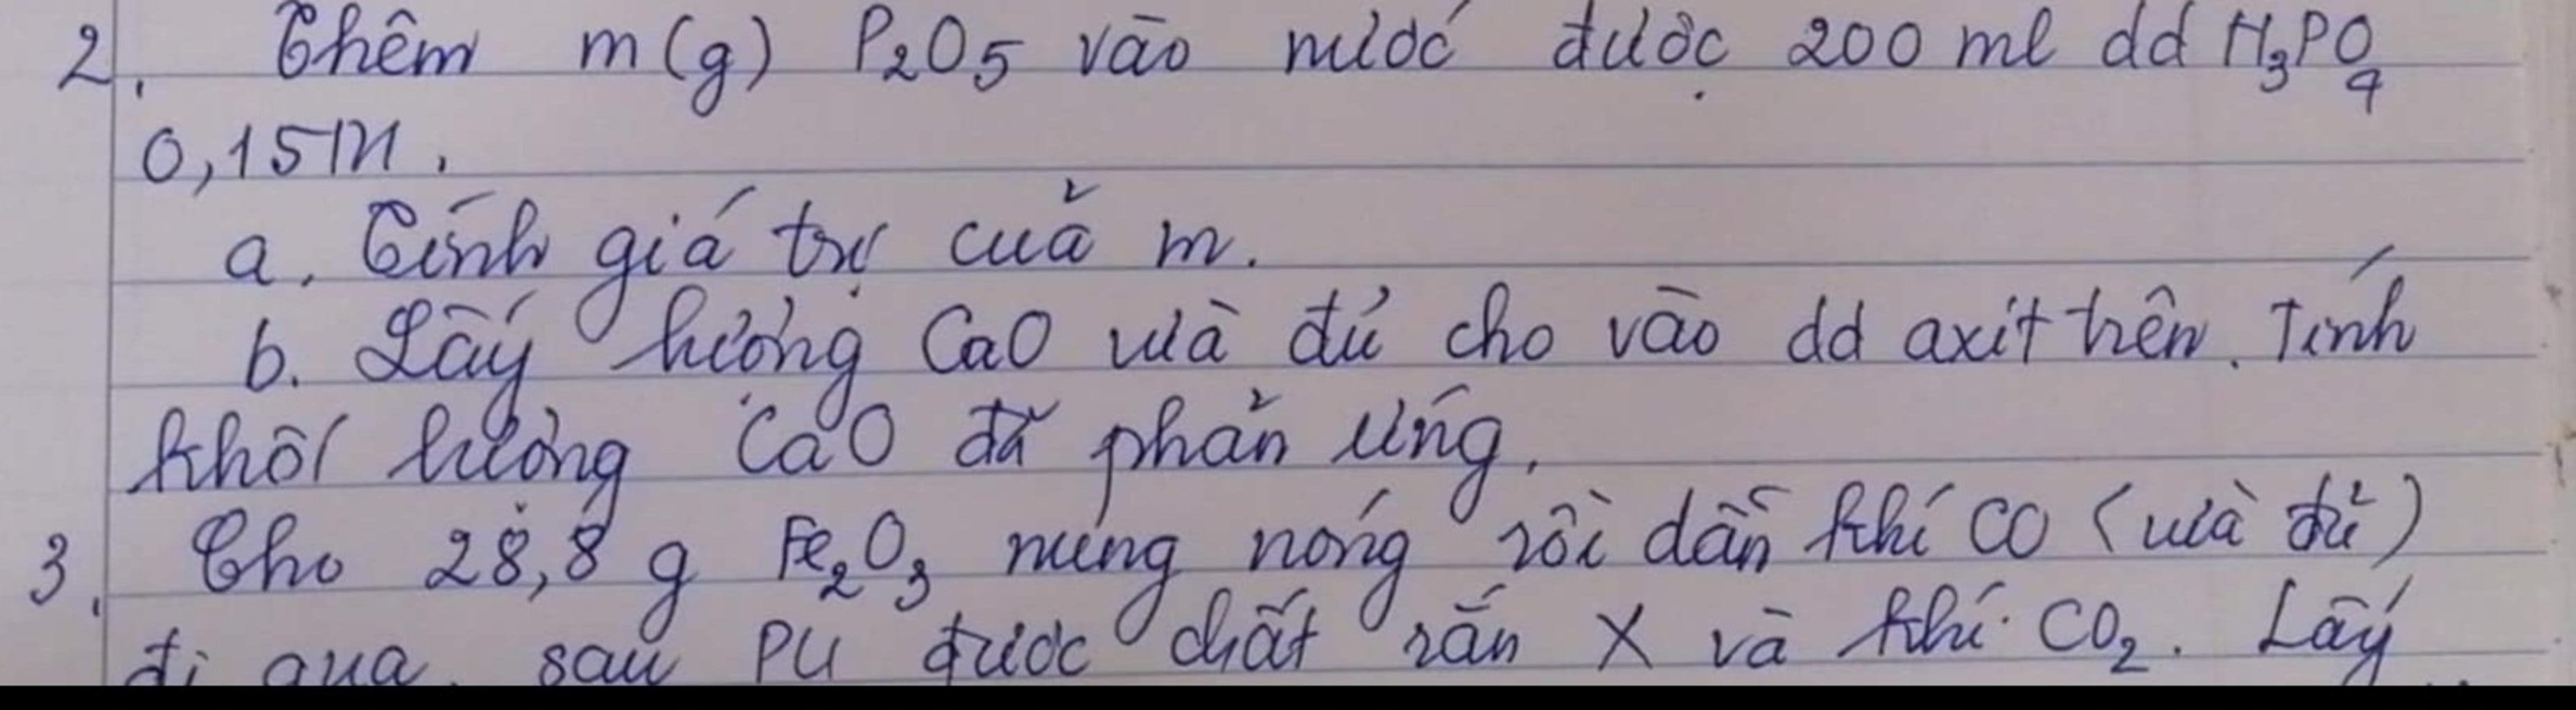 2. Thêm m(g) P₂O₅ vào nước được 200 ml dd H₃PO₄
0,15M.
a. Tính giá trị của m.
b. Lấy lượng CaO vừa đủ cho vào dd axit trên. Tính
khối lượng CaO đã phản ứng.
3. Cho 28,8 g Fe₂O₃ nung nóng rồi dẫn khí CO (vừa đủ)
đi qua, sau PƯ được chất rắn X và khí CO₂. Lấy